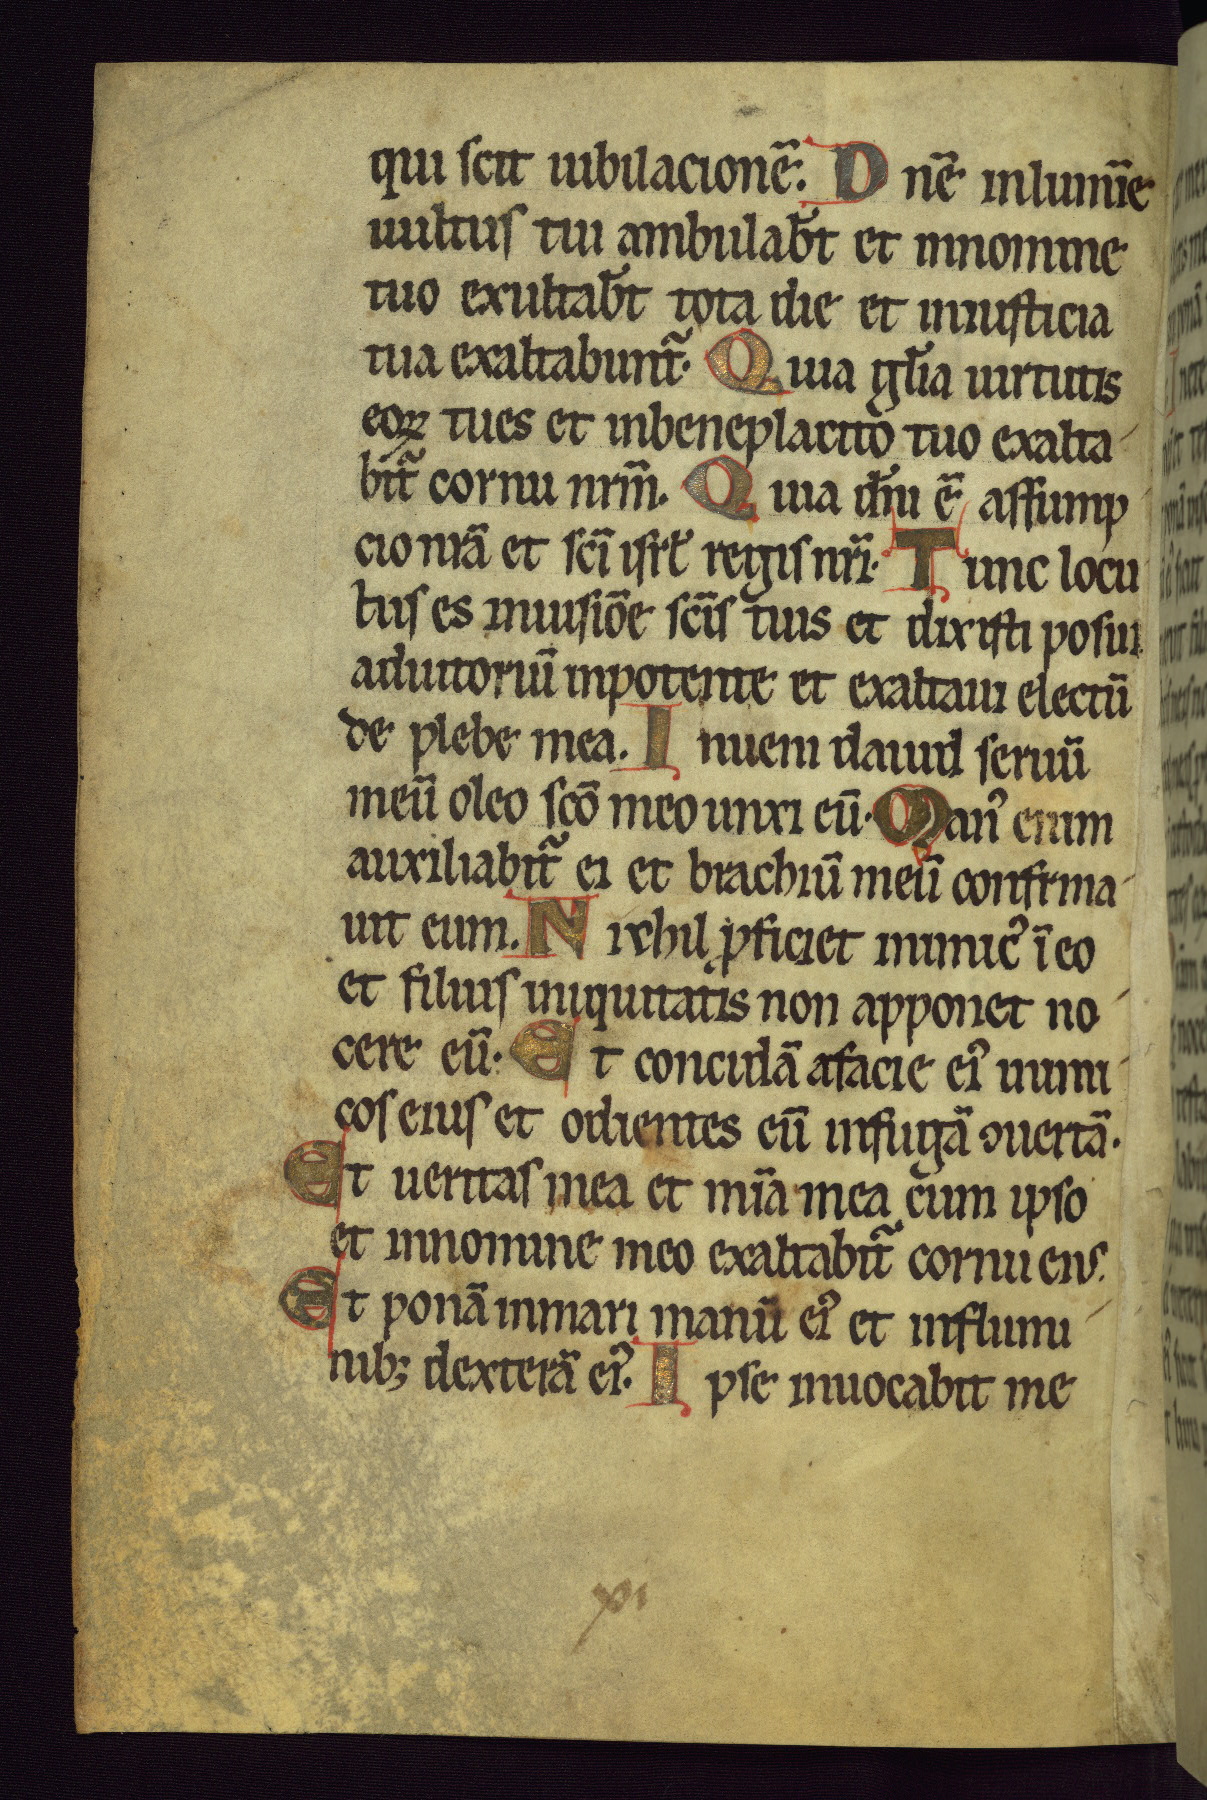 qui scit iubilacionē. Dnē inlumīe
uultus tui ambulab̄t et innomine
tuo exultab̄t tota die et iniusticia
tua exaltabunt᷑. Quia gl̄ia uirtutis
eoꝝ tues et inbeneplacito tuo exalta
bit᷑ cornu nrm̄. Quia dn̄i ē assump
cio nrā et scī isrl̄ regis nrī. Tunc locu
tus es inuisiōe scīs tuis et dixisti posui
adiutoriū inpotente et exaltaui electū
de plebe mea. Inueni dauid seruū
meū oleo scō meo unxi eū. Manꝰ enim
auxiliabit᷑ ei et brachiū meū confirma
uit eum. Nichil ꝓficiet inimicꝰ ī eo
et filius iniquitatis non apponet no
cere eū. Et concidā afacie eiꝰ inimi
cos eius et odientes eū infugā ↄuertā.
Et ueritas mea et mīa mea cum ipso
et innomine meo exaltabit᷑ cornu eius.
Et ponā inmari manū eiꝰ et influmi
nibꝫ dexterā eiꝰ. Ipse inuocabit me
xi